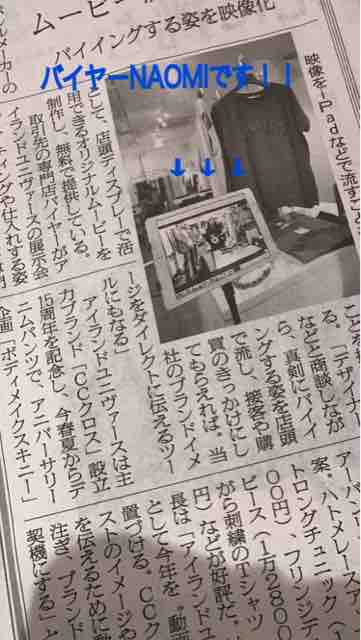 ムービー
バイイングする姿を映像化
バイヤーNAOMIです！！
↓ ↓ ↓
映像をiPadなどで流すこ
して、店頭ディスプレーで活
用できるオリジナルムービーを
制作し、無料で提供している。
取引先の専門店バイヤーがア
イランドユニヴァースの展示会
ティングや仕入れする姿
る。「デザイナー
などと商談しなが
ら、真剣にバイイ
ングする姿を店頭
で流し、接客や購
買のきっかけにし
てもらえれば。当
社のブランドイメ
ージをダイレクトに伝えるツー
ルにもなる」
アイランドユニヴァースは主
力ブランド「CCクロス」設立
15周年を記念し、今春夏からデ
ニムパンツで、アニバーサリー
企画「ボディメイクスキニー」
案。ハトメレースア
トロングチュニック（
00円）、フリンジデ
ピース（1万2800
がら刺繍のTシャツ
円）などが好評だ。
長は「アイランド
として今年を〝動
置づける。CCク
ストのイメージや
を伝えるために動
注ぎ、ブランド
契機にする」と